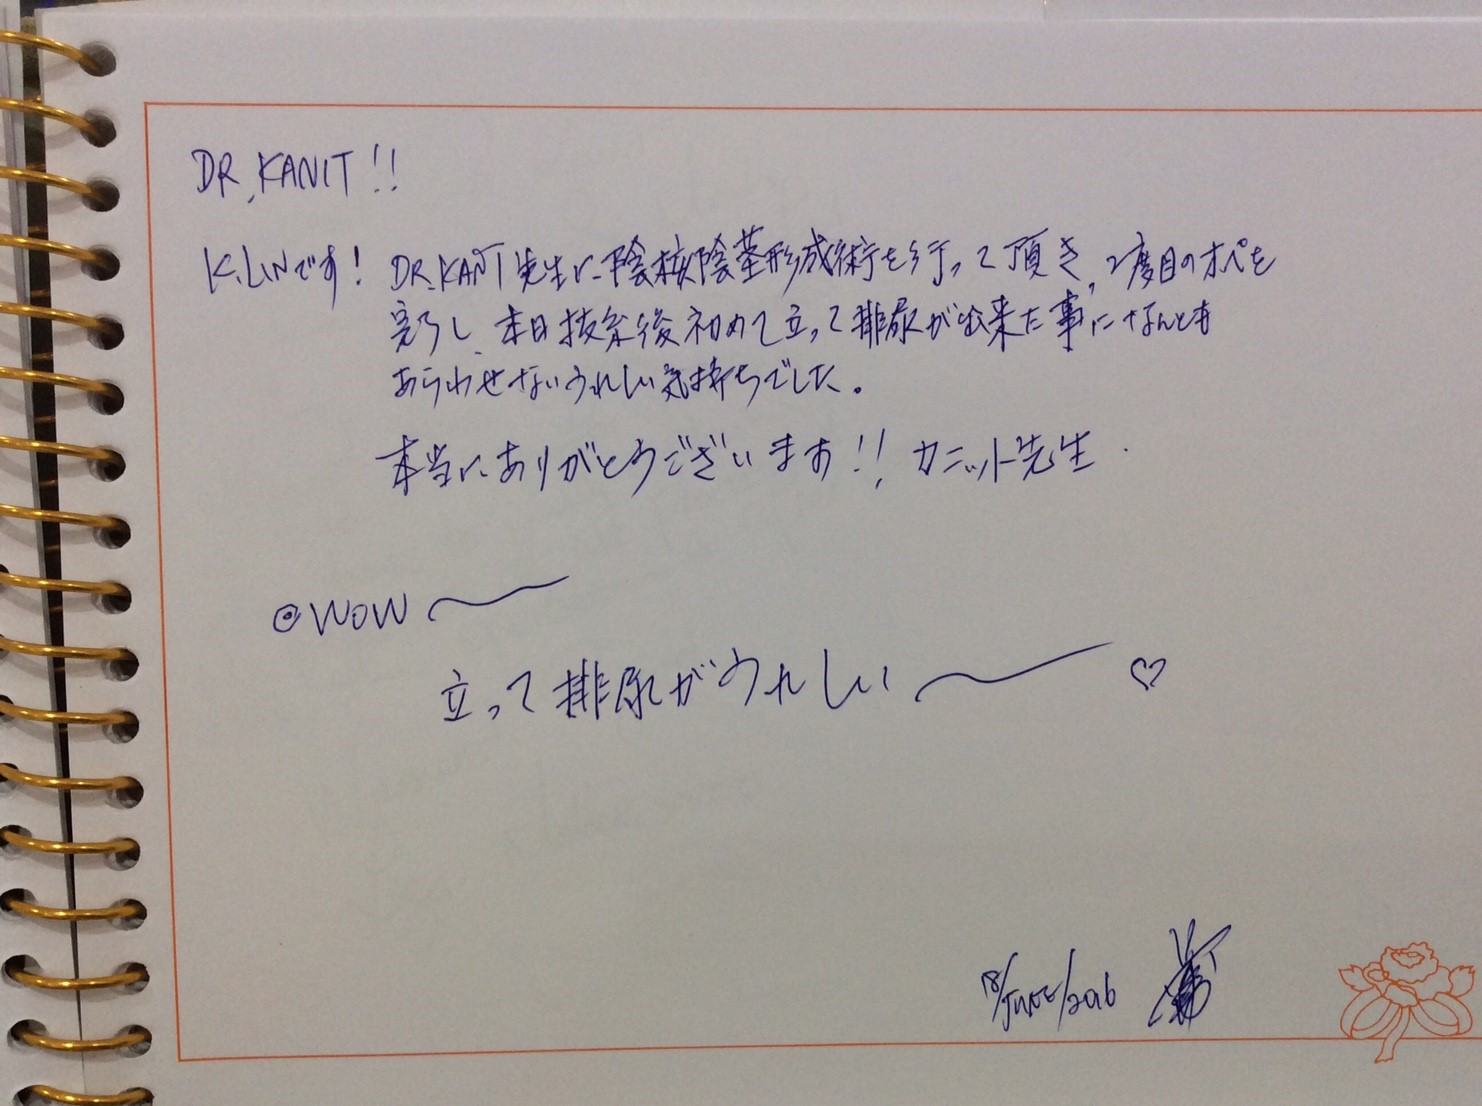 DR. KANIT!!
K. LINです! DR. KANIT先生に陰核陰茎形成術を行って頂き、2度目のオペを
完了し、本日抜糸後初めて立って排尿が出来た事になんとも
あらわせないうれしい気持ちでした。
本当にありがとうございます!! カニット先生.
◎WOW〜
立って排尿がうれしい〜♡
18/JUNE/2016